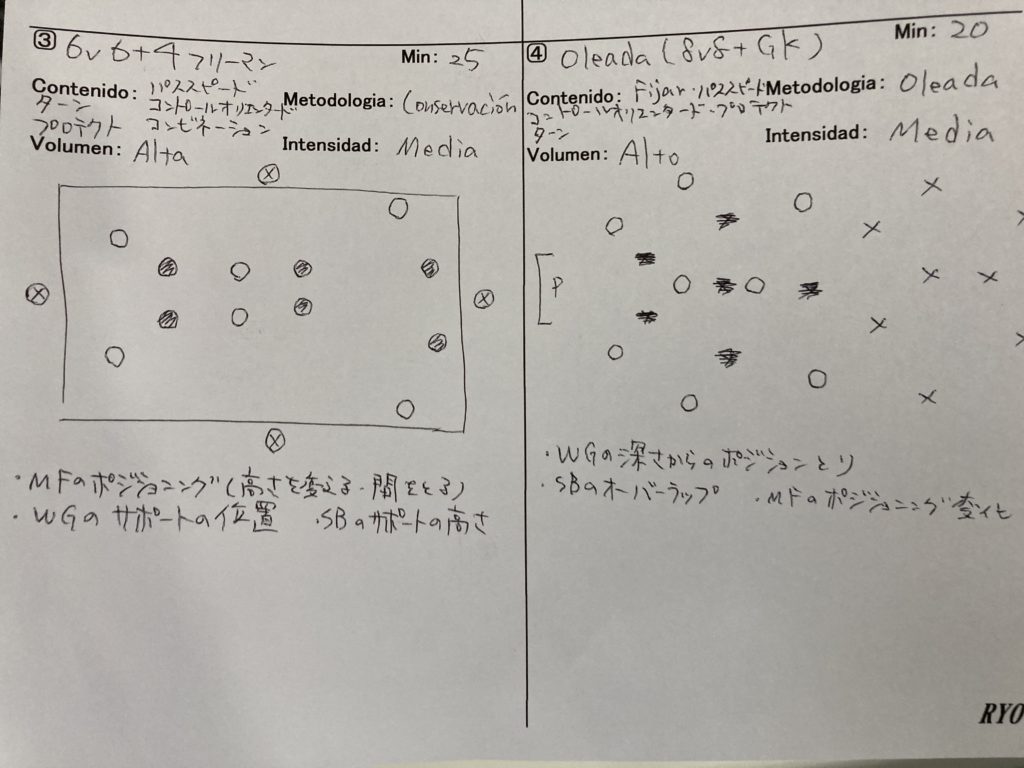 ③ 6v6+4フリーマン
Min: 25
Contenido: パススピード
ターン コントロールオリエンタード
プロテクト コンビネーション
Metodologia: Conservación
Volumen: Alta
Intensidad: Media
・MFのポジショニング(高さを変える・間をとる)
・WGのサポートの位置 ・SBのサポートの高さ
④ Oleada (8v8+GK)
Min: 20
Contenido: Fijar・パススピード
コントロールオリエンタード・プロテクト
ターン
Metodologia: Oleada
Volumen: Alto
Intensidad: Media
P
・WGの深さからのポジションとり
・SBのオーバーラップ ・MFのポジショニング変化
RYO